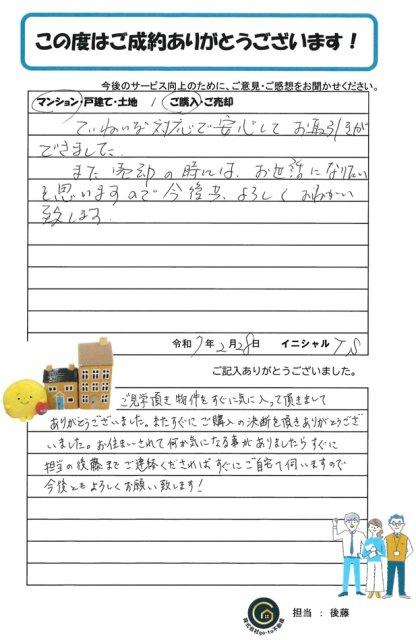 この度はご成約ありがとうございます！
今後のサービス向上のために、ご意見・ご感想をお聞かせください。
マンション・戸建て・土地 / ご購入・ご売却
ていねいな対応で安心してお取引きが
できました。
また売却の時には、お世話になりたい
と思いますので今後共、よろしくおねがい
致します。
令和 7 年 2 月 28 日 イニシャル T S
ご記入ありがとうございました。
ご見学頂き物件をすぐに気に入って頂きまして
ありがとうございました。またすぐにご購入の決断を頂きありがとうござ
いました。お住まいされて何か気になる事がありましたらすぐに
担当の後藤までご連絡くださればすぐにご自宅で伺いますので
今後ともよろしくお願い致します！
株式会社go-to不動産
担当 : 後藤